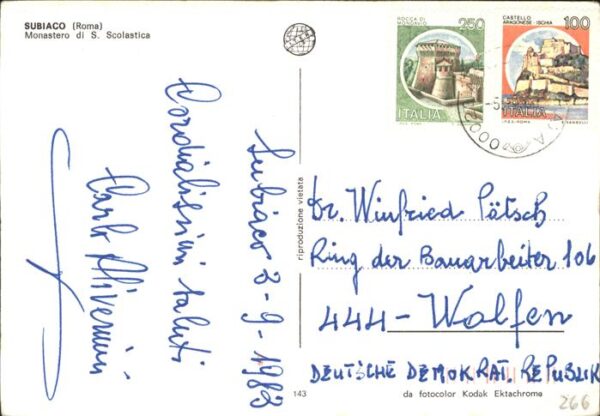 SUBIACO (Roma)
Monastero di S. Scolastica
ROCCA DI
MONDAVIO
250
ITALIA
CASTELLO
ARAGONESE - ISCHIA
100
ITALIA
Subiaco 3-9-1983
Cordialissimi saluti
Carlo
riproduzione vietata
Dr. Winfried Pätsch
Ring der Bauarbeiter 106
444-Wolfen
DEUTSCHE DEMOKRAT. REPUBLIK
143
da fotocolor Kodak Ektachrome
266